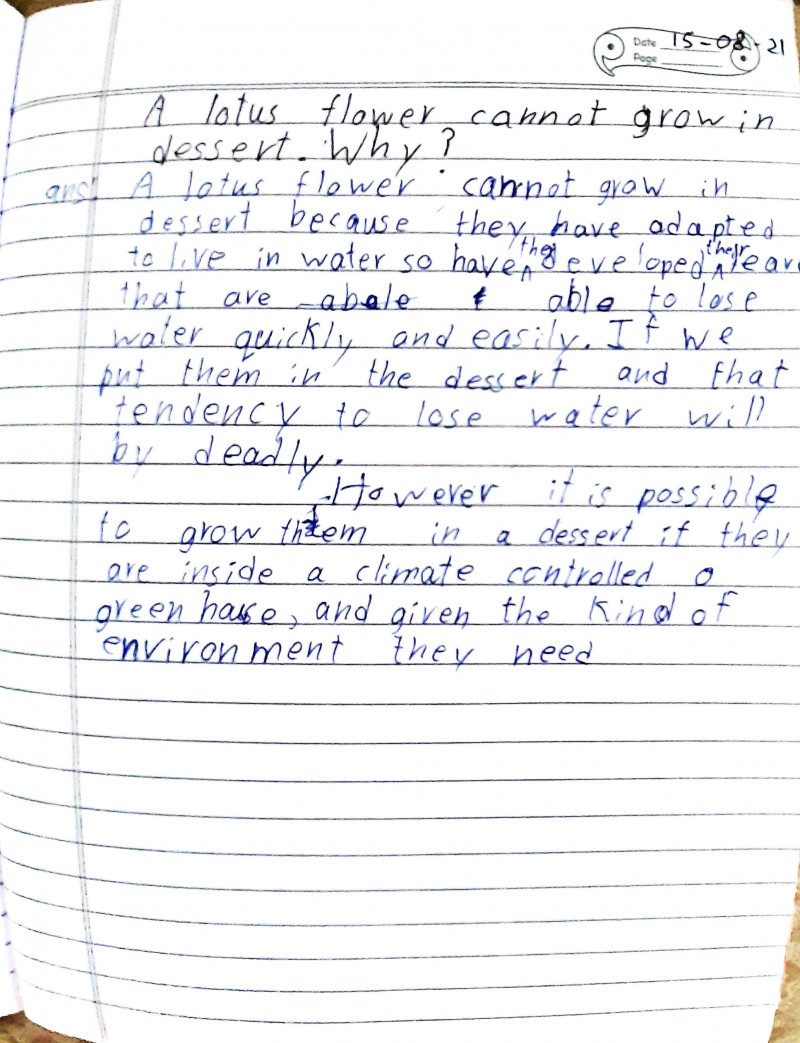 Date 15-08-21
Page
A lotus flower cannot grow in
dessert. Why?
ans: A lotus flower cannot grow in
dessert because they have adapted
to live in water so have they developed their leav
that are abale able to lose
water quickly and easily. If we
put them in the dessert and that
tendency to lose water will
by deadly.
However it is possible
to grow them in a dessert if they
are inside a climate controlled o
green house, and given the kind of
environment they need